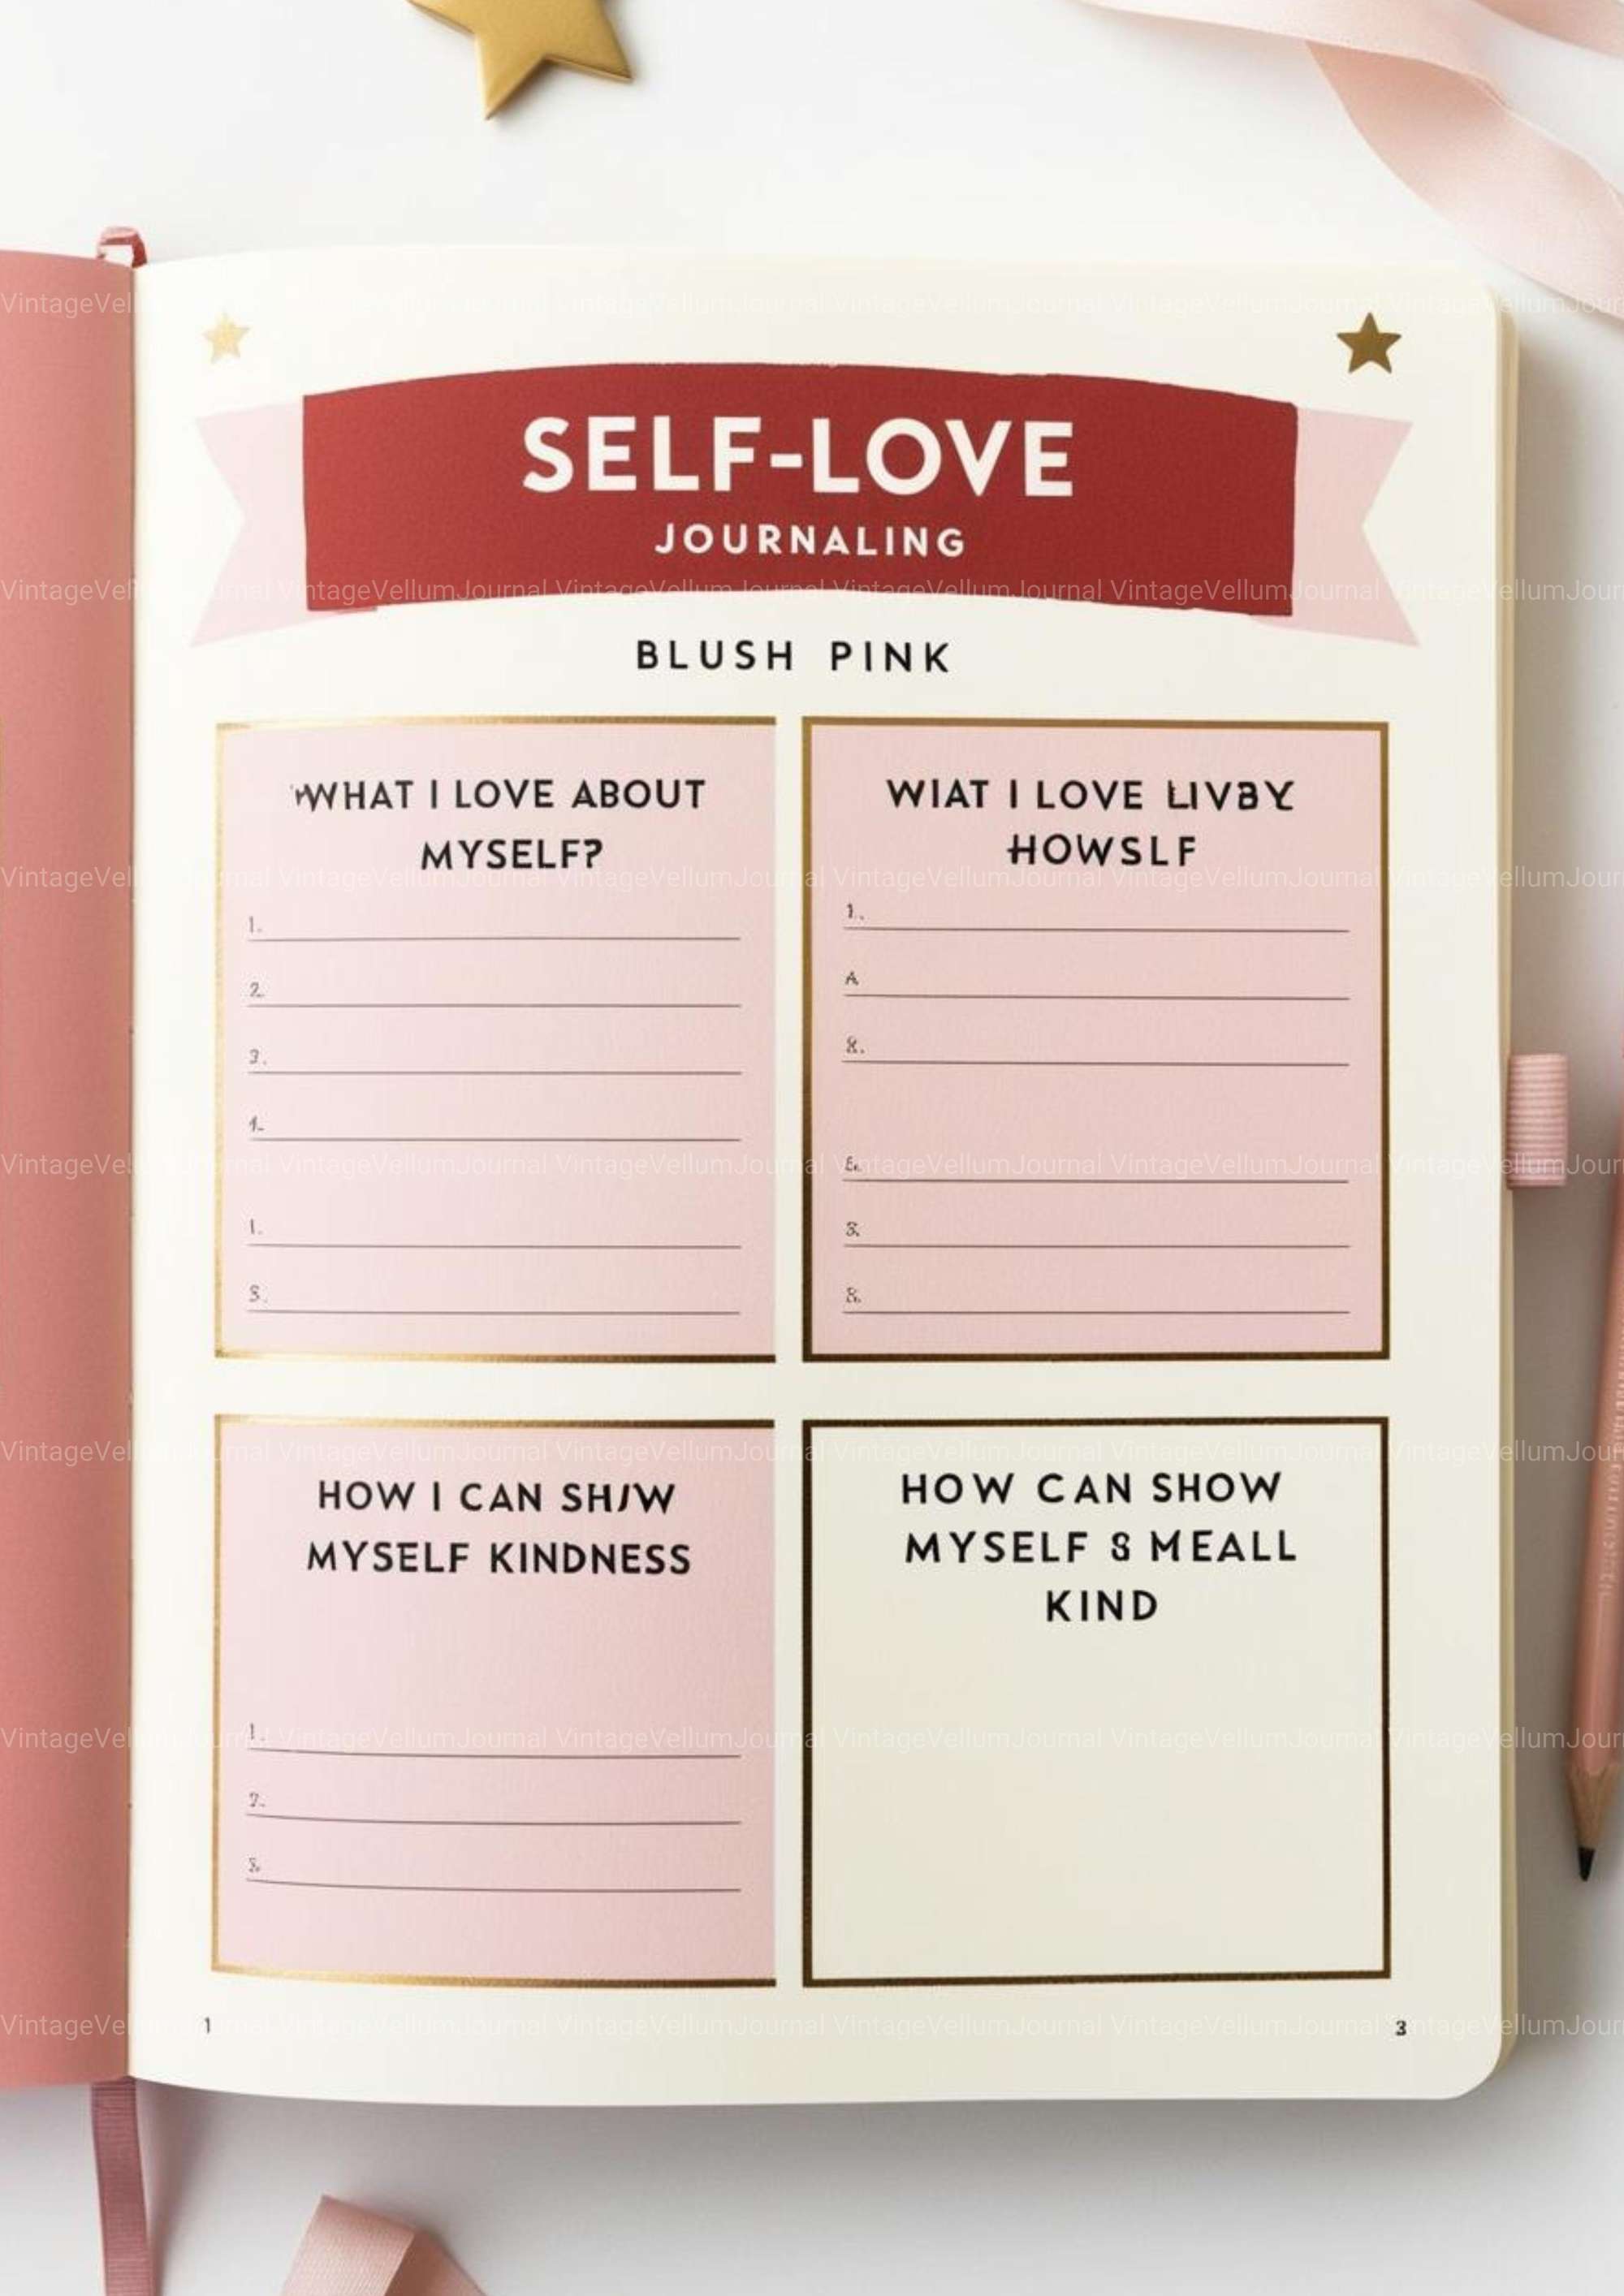 SELF-LOVE
JOURNALING
BLUSH PINK
WHAT I LOVE ABOUT
MYSELF?
1.
2.
3.
1.
S.
WIAT I LOVE LIVBY
HOWSLF
1.
A
8.
S.
8.
HOW I CAN SHIW
MYSELF KINDNESS
1.
2.
HOW CAN SHOW
MYSELF 8 MEALL
KIND
1
3
VintageVellumJournal VintageVellumJournal VintageVellumJournal